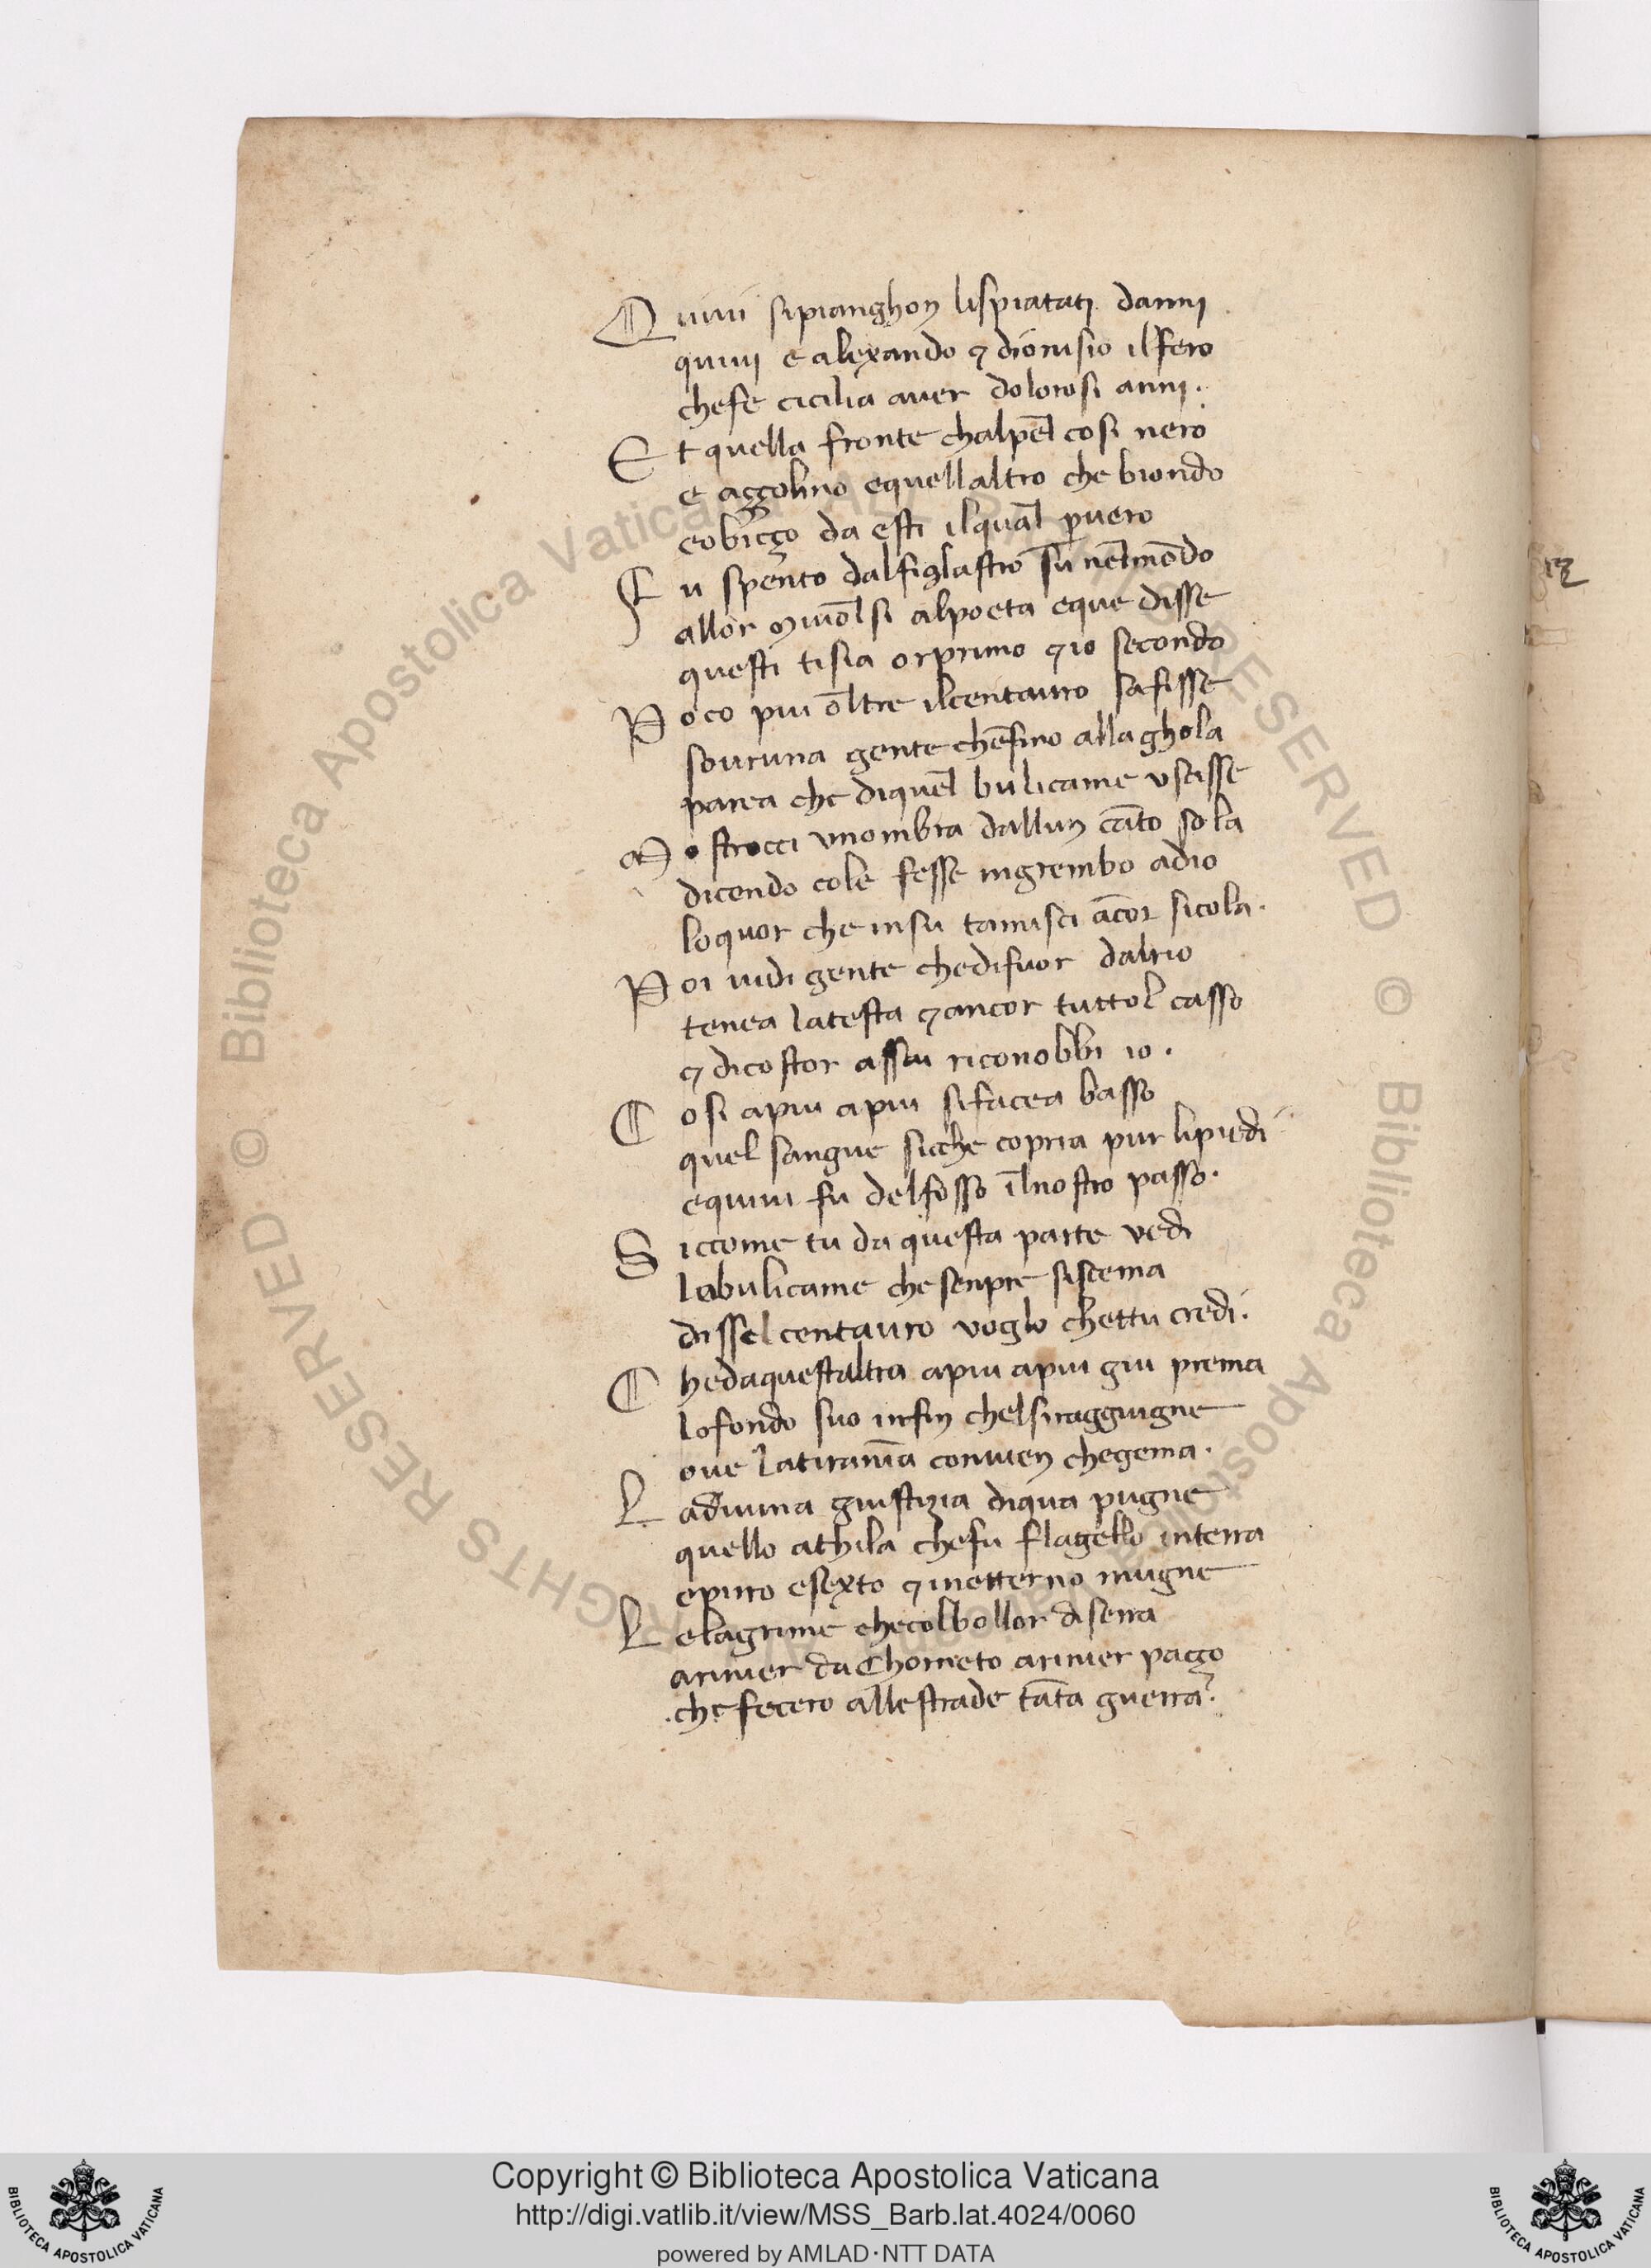 Quiui sipianghon lispiatati danni
quiui e alexando ⁊ dionisio ilfero
chefe cicilia auer dolorosi anni.
Et quella fronte chalpel̄ cosi nero
e aççolino equellaltro che biondo
eobiçço da esti ilqual ꝑuero
Fu spento dalfiglastro su nel mōdo
allor mi uolsi alpoeta eque disse
questi tisia orprimo ⁊ io secondo
Poco piu oltre ilcentauro safisse
souruna gente chēfino allaghola
parea che diquel bulicame uscisse
Mostrocci unombra dallun cāto sola
dicendo cole fesse ingrembo adio
loquor che insu tamisci ācor sicola.
Poi uidi gente chedifuor dalrio
tenea latesta ⁊ ancor tuttol casso
⁊ dicostor assai riconobbi io.
Cosi apiu apiu sifacea basso
quel sangue sicche copria pur lipiedi
equiui fu delfosso il nostro passo.
Siccome tu da questa parte uedi
lobulicame che senpre siscema
dissel centauro uoglo chettu credi.
Chedaquestaltra apiu apiu giu prema
lofondo suo infin chelsiraggiugne
oue latirānia conuien chegema.
Ladiuina giustizia diqua pugne
quello athila chefu flagello interra
epirro esexto ⁊ inetterno mugne
Lelagrime checolbollor diserra
arinier da Chorneto arinier paçço
chefecero allestrade tāta guerra.
Copyright © Biblioteca Apostolica Vaticana
http://digi.vatlib.it/view/MSS_Barb.lat.4024/0060
powered by AMLAD·NTT DATA
BIBLIOTECA APOSTOLICA VATICANA
BIBLIOTECA APOSTOLICA VATICANA
© Biblioteca Apostolica Vaticana ALL RIGHTS RESERVED © Biblioteca Apostolica Vaticana ALL RIGHTS RESERVED